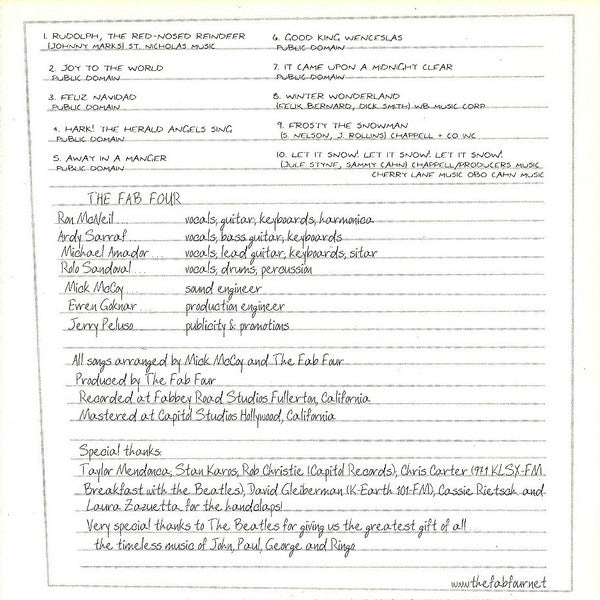 1. RUDOLPH, THE RED-NOSED REINDEER
(JOHNNY MARKS) ST. NICHOLAS MUSIC
2. JOY TO THE WORLD
PUBLIC DOMAIN
3. FELIZ NAVIDAD
PUBLIC DOMAIN
4. HARK! THE HERALD ANGELS SING
PUBLIC DOMAIN
5. AWAY IN A MANGER
PUBLIC DOMAIN
6. GOOD KING WENCESLAS
PUBLIC DOMAIN
7. IT CAME UPON A MIDNIGHT CLEAR
PUBLIC DOMAIN
8. WINTER WONDERLAND
(FELIX BERNARD, DICK SMITH) WB MUSIC CORP
9. FROSTY THE SNOWMAN
(S. NELSON, J. ROLLINS) CHAPPELL + CO INC
10. LET IT SNOW! LET IT SNOW! LET IT SNOW!
(JULE STYNE, SAMMY CAHN) CHAPPELL/PRODUCERS MUSIC
CHERRY LANE MUSIC OBO CAHN MUSIC
THE FAB FOUR
Ron McNeil... vocals, guitar, keyboards, harmonica
Ardy Sarraf... vocals, bass guitar, keyboards
Michael Amador... vocals, lead guitar, keyboards, sitar
Rolo Sandoval... vocals, drums, percussion
Mick McCoy... sound engineer
Evren Göknar... production engineer
Jerry Peluso... publicity & promotions
All songs arranged by Mick McCoy and The Fab Four
Produced by The Fab Four
Recorded at Fabbey Road Studios Fullerton, California
Mastered at Capitol Studios Hollywood, California
Special thanks:
Taylor Mendonca, Stan Karos, Rob Christie (Capitol Records), Chris Carter (97.1 KLSX-FM
Breakfast with the Beatles), David Gleiberman (K-Earth 101-FM), Cassie Rietsch and
Laura Zazuetta for the handclaps!
Very special thanks to The Beatles for giving us the greatest gift of all
the timeless music of John, Paul, George and Ringo
www.thefabfour.net